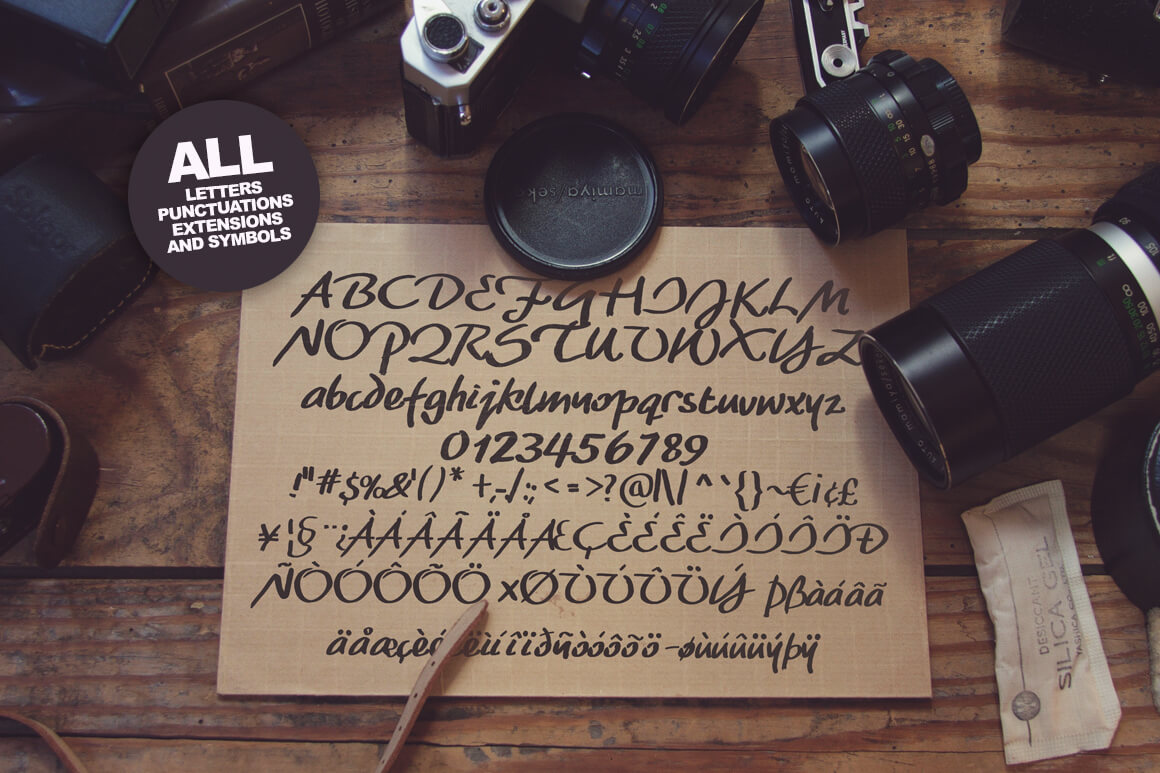 ALL
LETTERS
PUNCTUATIONS
EXTENSIONS
AND SYMBOLS
mamiya/sekor
ABCDEFGHIJKLM
NOPQRSTUVWXYZ
abcdefghijklmnopqrstuvwxyz
0123456789
!"#$%&'()*+,-./:;<=>?@[\]^`{}~€¡¢£
¥¦§¨¨¿ÀÁÂÃÄÅÆÇÈÉÊËÌÍÎÏÐ
ÑÒÓÔÕÖ×ØÙÚÛÜÝ Þßàáâã
äåæçèé ëìíîïðñòóôõö-øùúûüýþÿ
DESICCANT
SILICA GEL
YASHICA CO.